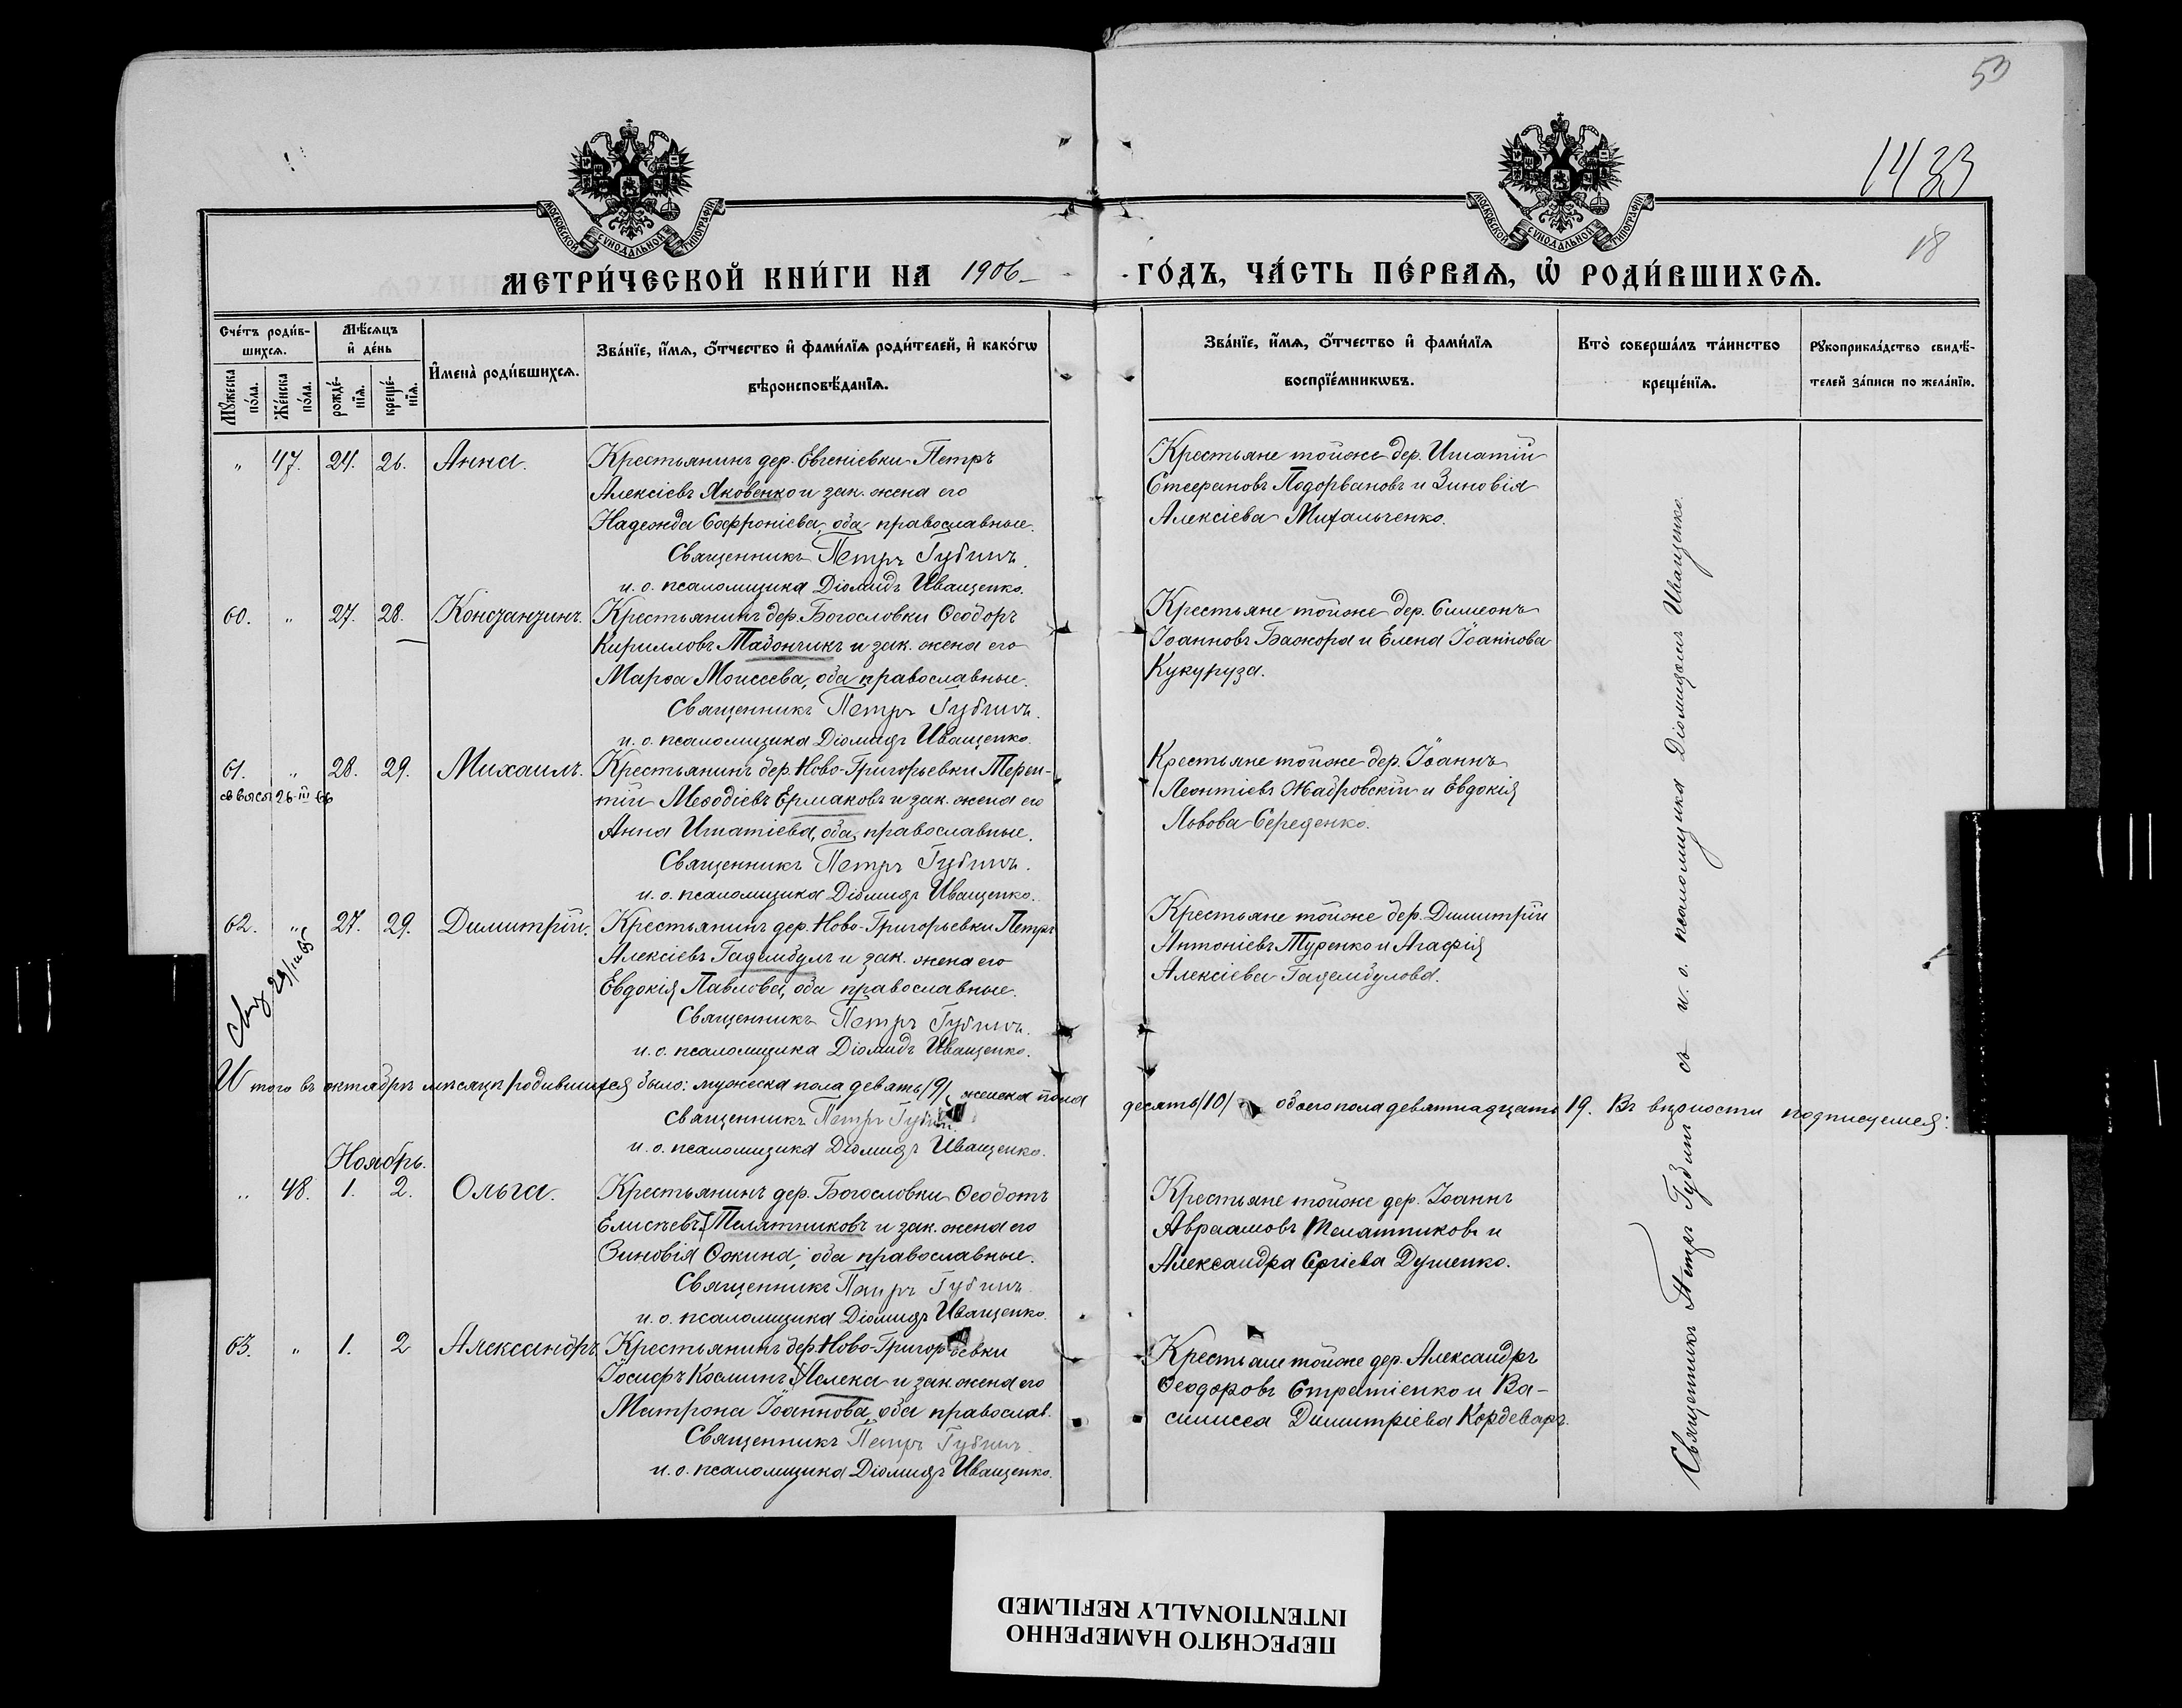 53
1433
18
МОСКОВСКОЙ СУНОДАЛЬНОЙ ТИПОГРАФІИ
МОСКОВСКОЙ СУНОДАЛЬНОЙ ТИПОГРАФІИ
МЕТРИ́ЧЕСКОЙ КНИ́ГИ НА 1906 ГО́ДЪ, ЧА́СТЬ ПЕ́РВАѦ, Ѡ РОДИ́ВШИХСѦ.
Сче́тъ роди́в-
шихся.
Мꙋжеска по́ла.
Же́нска по́ла.
Мѣ́сѧцъ и де́нь
рожде́-нїѧ.
креще́-нїѧ.
Имена̀ роди́вшихсѧ.
Зва́нїе, и҆́мѧ, ѻ҆́тчество и҆ фами́лїѧ роди́телей, и҆ како́гѡ
вѣроисповѣ́данїѧ.
Зва́нїе, и҆́мѧ, ѻ҆́тчество и҆ фами́лїѧ
воспрїе́мникѡвъ.
Кто̀ соверша́лъ та́инство
креще́нїѧ.
Рꙋкоприкла́дство свидѣ́-
телей за́писи по жела́нїю.
" 47. 24. 26. Анна.
Крестьянинъ дер. Евгеніевки Петръ
Алексіевъ Яковенко и зак. жена его
Надежда Софроніева, оба православные.
Священникъ Петръ Губинъ.
и. о. псаломщика Діомидъ Иващенко.
Крестьяне тойже дер. Игнатій
Стефановъ Подорвановъ и Зиновія
Алексіева Михальченко.
60. " 27. 28. Константинъ.
Крестьянинъ дер. Богословки Ѳеодоръ
Кирилловъ Тадончикъ и зак. жена его
Марѳа Моисеева, оба православные.
Священникъ Петръ Губинъ.
и. о. псаломщика Діомидъ Иващенко.
Крестьяне тойже дер. Симеонъ
Іоанновъ Бажора и Елена Іоаннова
Кукуруза.
61. " 28. 29. Михаилъ.
26 III 66
Крестьянинъ дер. Ново-Григорьевки Терен-
тій Меѳодіевъ Ермаковъ и зак. жена его
Анна Игнатіева, оба православные.
Священникъ Петръ Губинъ.
и. о. псаломщика Діомидъ Иващенко.
Крестьяне тойже дер. Іоаннъ
Леонтіевъ Жадровскій и Евдокія
Львова Середенко.
62. " 27. 29. Димитрій.
Крестьянинъ дер. Ново-Григорьевки Петръ
Алексіевъ Гаделбулъ и зак. жена его
Евдокія Павлова, оба православные.
Священникъ Петръ Губинъ.
и. о. псаломщика Діомидъ Иващенко.
Крестьяне тойже дер. Димитрій
Антоніевъ Туренко и Агафія
Алексіева
Итого въ октябрѣ мѣсяцѣ родившихся было: мужеска пола девять /9/, женска пола десять /10/ обоего пола девятнадцать 19. Въ вѣрности подписуемся:
Священникъ Петръ Губинъ.
и. о. псаломщика Діомидъ Иващенко.
Ноябрь.
" 48. 1. 2. Ольга.
Крестьянинъ дер. Богословки Ѳеодотъ
Елисѣевъ Телятниковъ и зак. жена его
Зиновія Ѳокина, оба православные.
Священникъ Петръ Губинъ.
и. о. псаломщика Діомидъ Иващенко.
Крестьяне тойже дер. Іоаннъ
Авраамовъ Телятниковъ и
Александра Сергіева Душенко.
63. " 1. 2 Александръ.
Крестьянинъ дер. Ново-Григорьевки
Іосифъ Косминъ и зак. жена его
Матрона Іоаннова, оба православ.
Священникъ Петръ Губинъ.
и. о. псаломщика Діомидъ Иващенко.
Крестьяне тойже дер. Александръ
Ѳеодоровъ Стратіенко и Ва-
силисса Димитріева Кордеваръ.
Священникъ Петръ Губинъ съ и. о. псаломщика Діомидомъ Иващенко.
ПЕРЕСНЯТО НАМЕРЕННО
INTENTIONALLY REFILMED